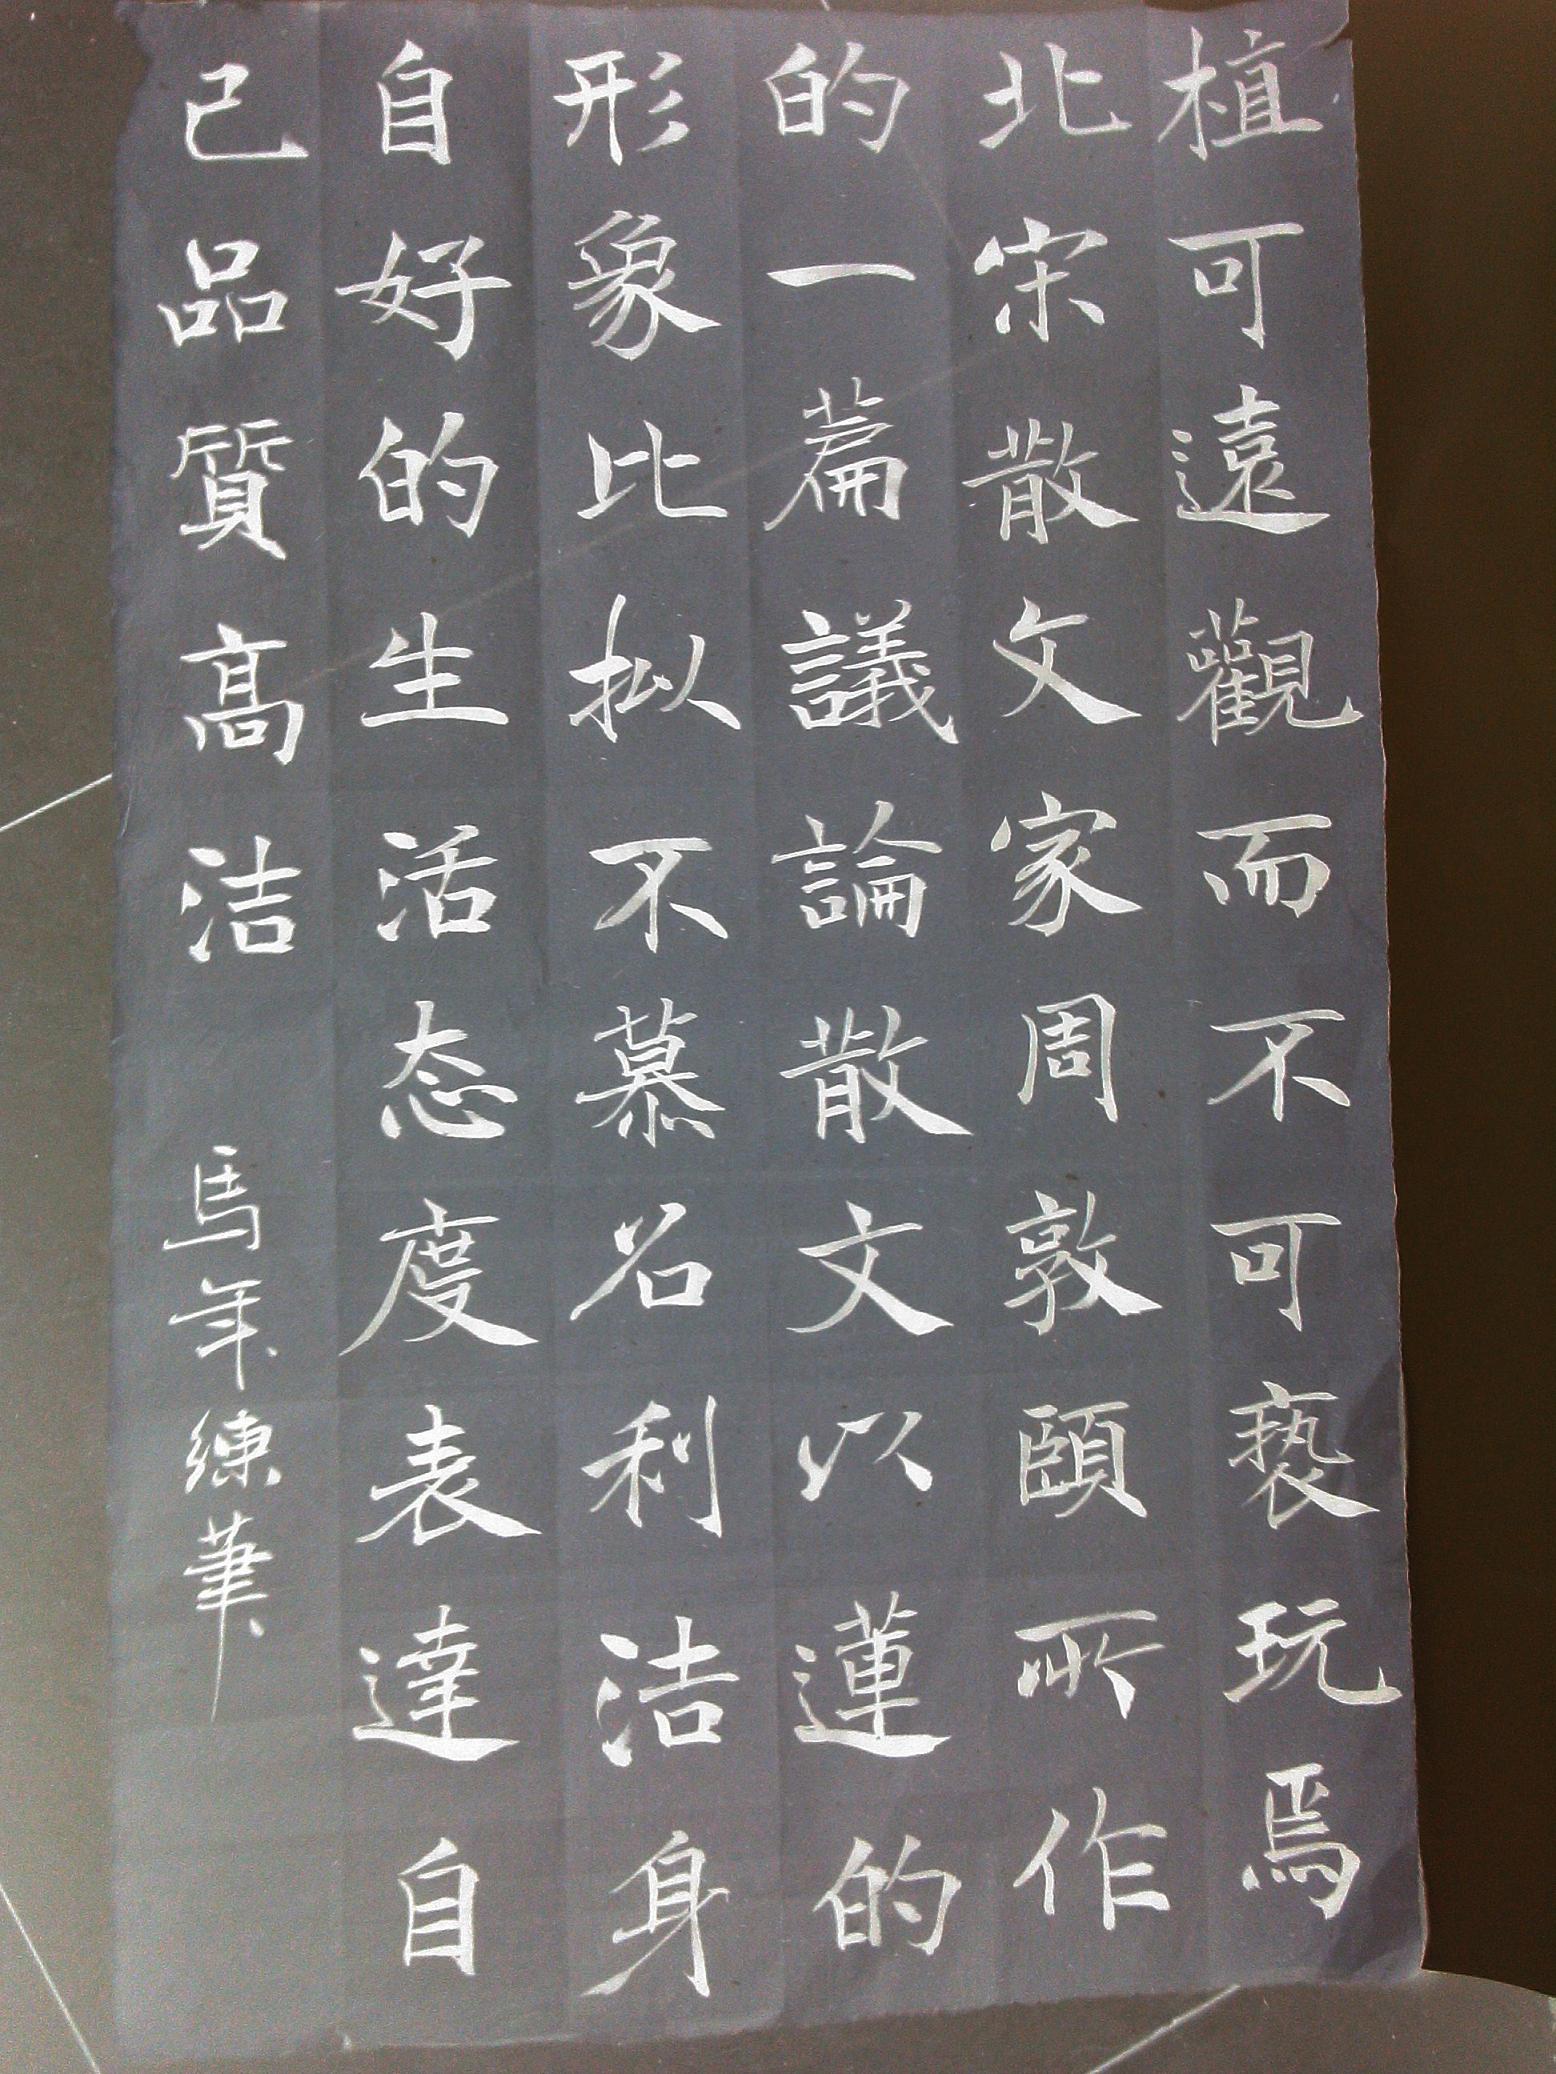 植可遠觀而不可亵玩焉
北宋散文家周敦頤所作
的一篇議論散文以蓮的
形象比拟不慕名利洁身
自好的生活态度表達自
己品質高洁
馬年練筆